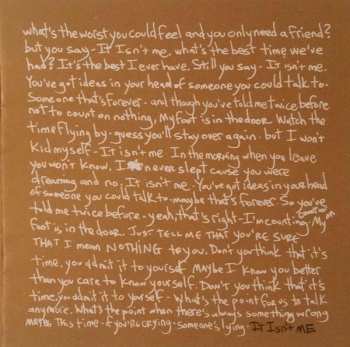 what's the worst you could feel and you only need a friend?
but you say - It Isn't me. what's the best time we've
had? It's the best I ever have. Still you say - It isn't me.
You've got ideas in your head of someone you could talk to -
Someone that's forever - and though you've told me twice before
not to count on nothing, My foot is in the door. Watch the
time flying by - guess you'll stay over again. but I won't
kid myself - It isn't me In the morning when you leave
you won't know. I never slept cause you were
dreaming and no. It isn't me. You've got ideas in your head
of someone you could talk to - maybe that's forever. So you've
told me twice before - yeah, that's right - I'm counting - My
foot is in the door. JUST TELL ME THAT YOU'RE SURE
THAT I mean NOTHING to you. Don't you think that it's
time, you admit it to yourself MAYBE I know you better
than you care to know yourself. Don't you think that it's
time, you admit it to yourself - What's the point for us to talk
anymore. What's the point when there's always something wrong
This time - if you're crying - someone's lying - It Isn't ME